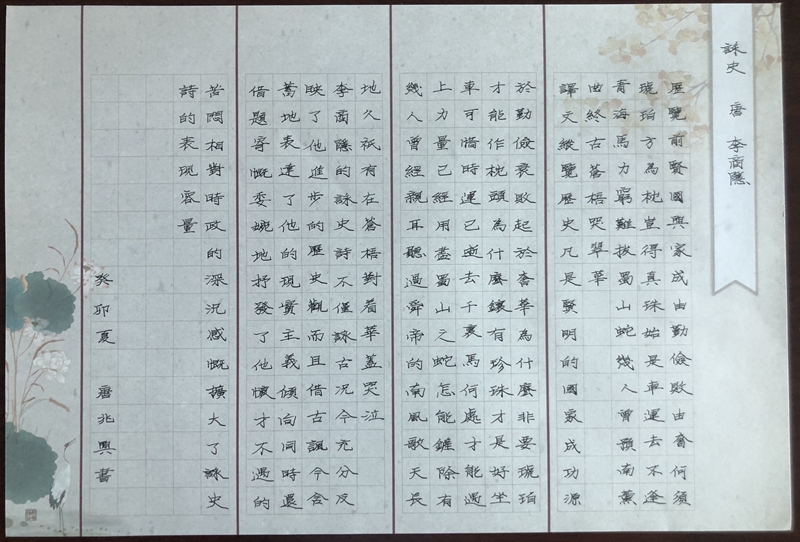 詠史 唐 李商隱
歷覽前賢國與家成由勤儉敗由奢何須
琥珀方為枕豈得真珠始是車運去不逢
青海馬力窮難拔蜀山蛇幾人曾預南薰
曲終古蒼梧哭翠華
譯文縱覽歷史凡是賢明的國家成功源
於勤儉衰敗起於奢華為什麼非要琥珀
才能作枕頭為什麼鑲有珍珠才是好坐
車可惜時運已逝去千裏馬何處才能遇
上力量已經用盡蜀山之蛇怎能鏟除有
幾人曾經親耳聽過舜帝的南風歌天長
地久祇有在蒼梧對着華蓋哭泣
李商隱的詠史詩不僅詠古況今充分反
映了他進步的歷史觀而且借古諷今含
蓄地表達了他的現實主義傾向同時還
借題寄慨委婉地抒發了他懷才不遇的
苦悶相對時政的深沉感慨擴大了詠史
詩的表現容量
癸卯夏 唐兆興書